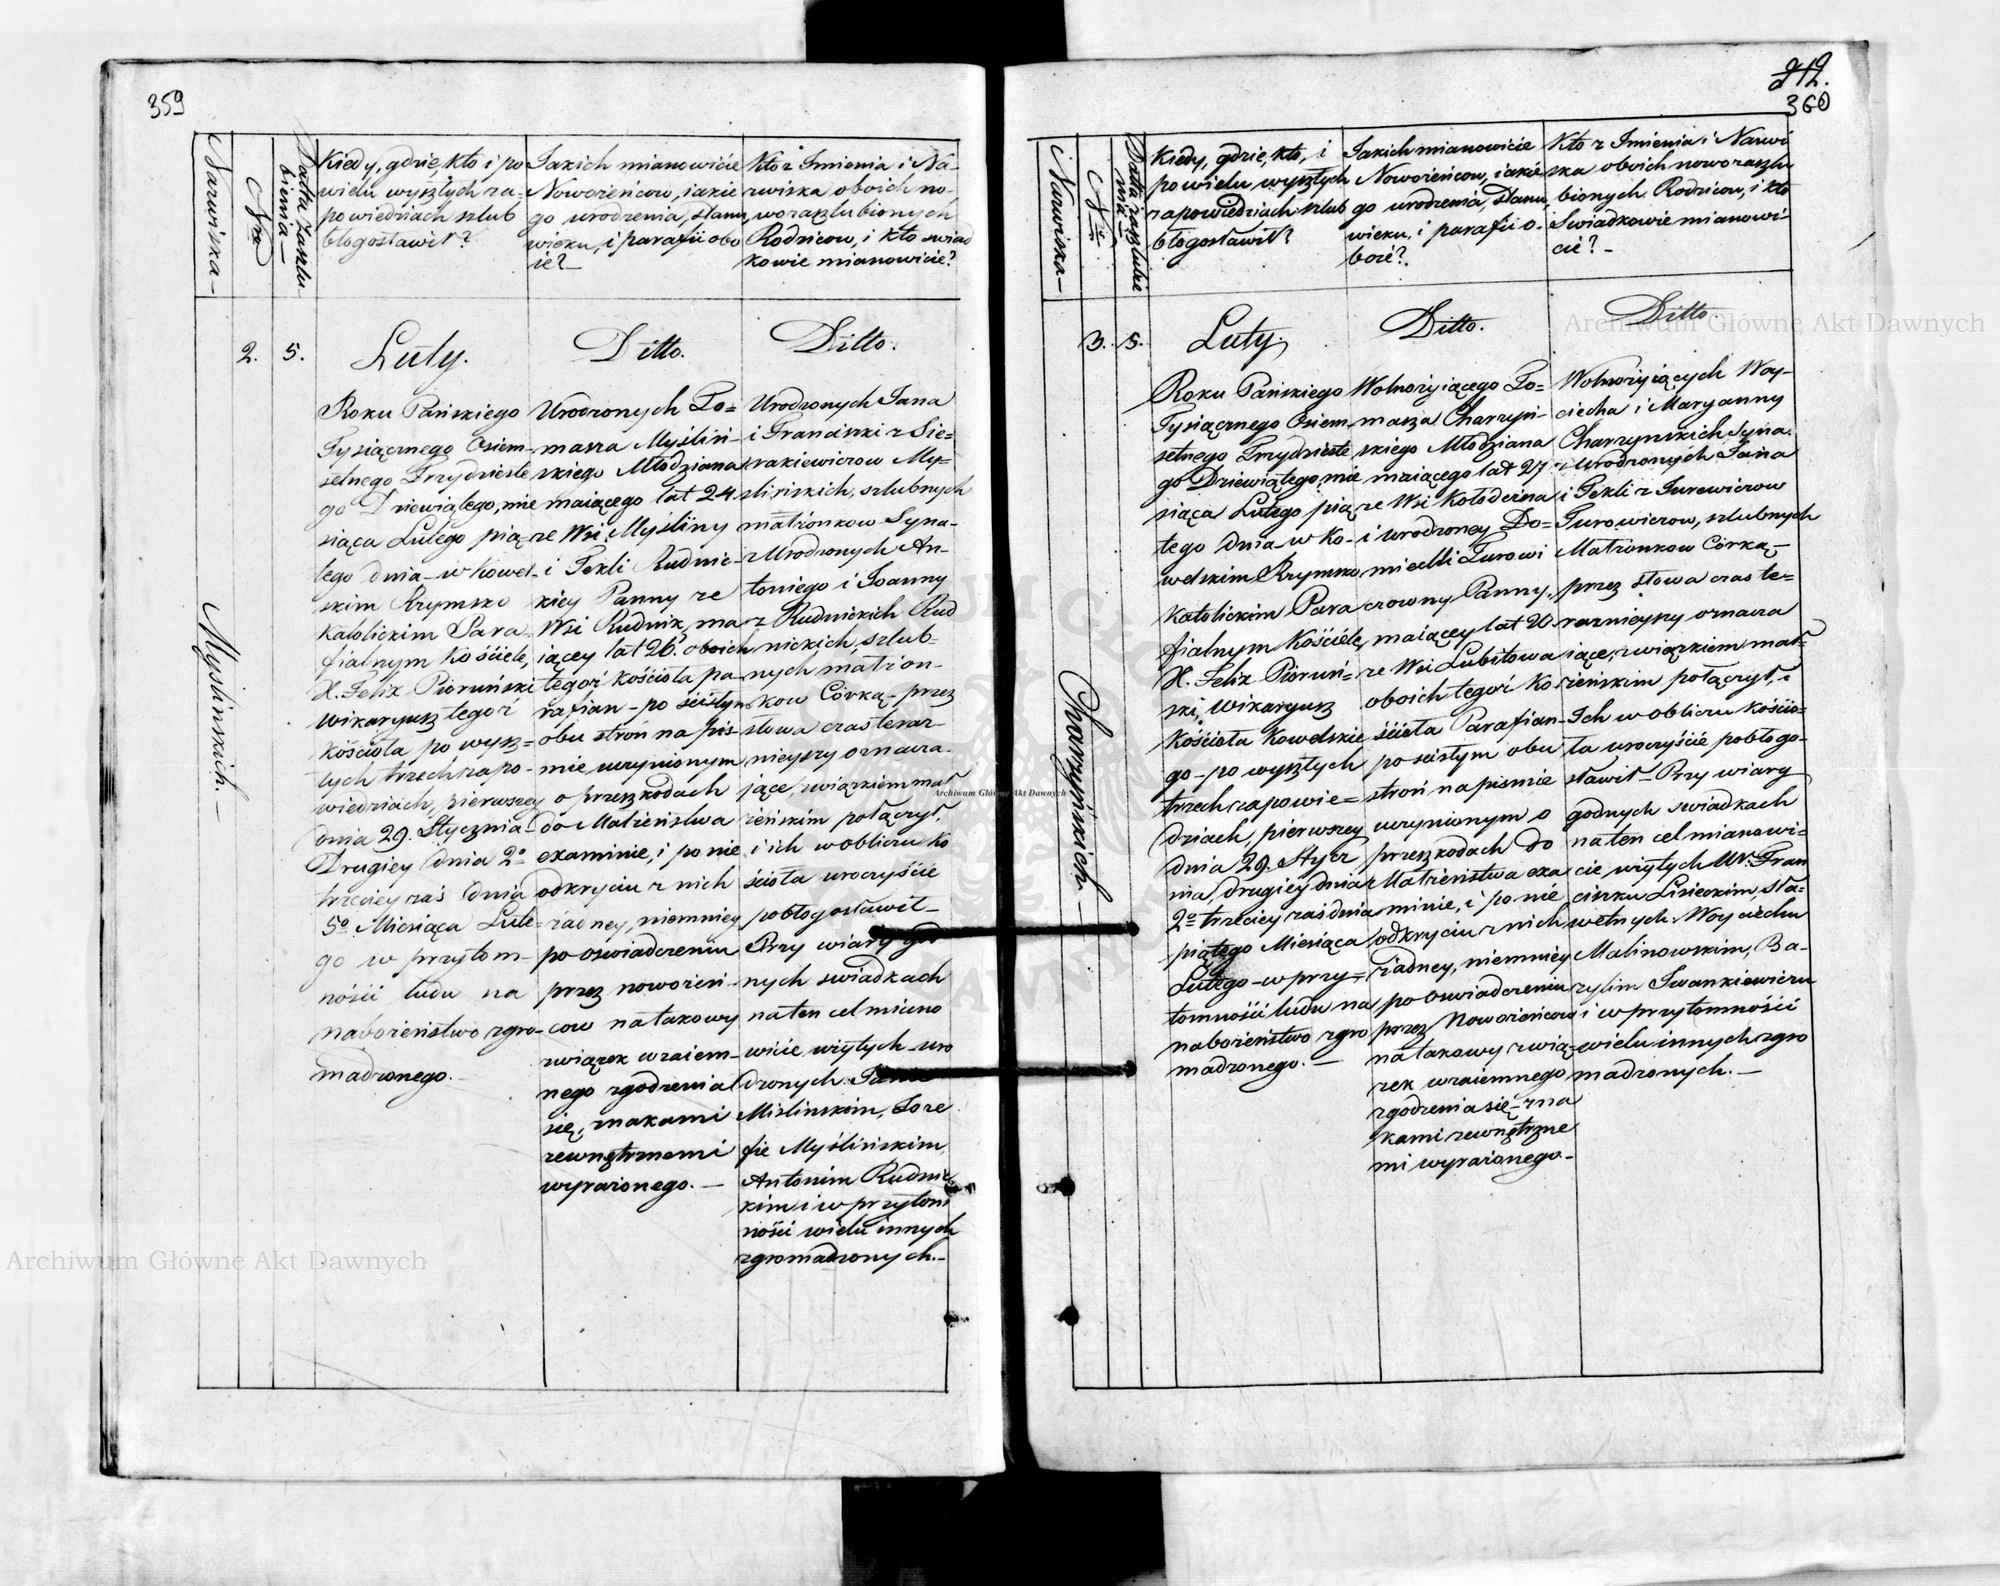 359
Nazwiska
Nra
Datta Zaszlu
bienia
Kiedy, gdzie, kto i po
wielu wyszłych za-
powiedziach szlub
błogosławił?
Jakich mianowicie
Nowożeńcow, iakie
go urodzenia, stanu
wieku, i parafii obo
ie?
Kto z Imienia i Na-
zwiska oboich no-
wozaszlubionych
Rodzicow, i kto swiad
kowie mianowicie?
Myslinskich.
2.
5.
Luty.
Roku Pańskiego
Tysiącznego Osiem-
setnego Trzydzieste
go Dziewiątego, mie
siąca Lutego pią-
tego dnia - w Kowel-
skim Rzymsko
Katolickim Para-
fialnym Kościele,
X. Felix Pioruński
wikaryusz tegoż
Kościoła po wysz=
łych trzech zapo-
wiedziach, pierwszey
dnia 29. Stycznia
Drugiey dnia 2º
trzeciey zaś dnia
5º Miesiąca Lute=
go w przytom-
ności ludu na
nabożeństwo zgro-
madzonego.-
Ditto.
Urodzonych To=
masza Myśliń-
skiego Młodziana
maiącego lat 24
ze Wsi Myśliny
i Tekli Rudnic-
kiey Panny ze
Wsi Rudnik, ma
iącey lat 26. oboich
tegoż kościoła pa-
rafian - po ścisłym
obu stron na pis-
mie uczynionym
o przeszkodach
do Małżeństwa
examinie, i po nie
odkryciu z nich
żadney, niemniey
po oswiadczeniu
przez nowożeń-
cow na takowy
związek wzaiem-
nego zgodzenia
się, znakami
zewnętrznemi
wyrażonego.-
Ditto.
Urodzonych Jana
i Franciszki z Sie=
rakiewiczow My=
slińskich, szlubnych
małżonkow Syna-
z Urodzonych An-
toniego i Joanny
z Rudnickich Rud
nickich, szlub-
nych małżon-
kow Córką - przez
słowa czas teraz-
nieyszy oznacza-
jące, związkiem mał
żeńskim połączył,
i ich w obliczu Ko
ścioła uroczyście
pobłogosławił-
Przy wiary god
nych swiadkach
na ten cel miano
wicie wziętych uro
dzonych Janie
Mislinskim, Joze
fie Myślińskim,
Antonim Rudnic
kim i w przytom
ności wielu innych
zgromadzonych.-
212.
360
Nazwiska
Nra
Datta zaszlubie
nia
Kiedy, gdzie, kto, i
po wielu wyszłych
zapowiedziach szlub
błogosławił?
Jakich mianowicie
Nowożeńcow, iakie
go urodzenia, stanu,
wieku, i parafii o-
boie?.
Kto z Imienia i Nazwi
ska oboich nowozaszlu
bionych Rodzicow, i kto
Swiadkowie mianowi-
cie?-
Charzyńskich
3.
5.
Luty.
Roku Pańskiego
Tysiącznego Osiem-
setnego Trzydzieste
go Dziewiątego, mie
siąca Lutego pią
tego dnia - w Ko-
welskim Rzymsko
Katolickim Para
fialnym Kościele,
X. Felix Pioruń=
ski, Wikaryusz
Kościoła Kowelskie
go - po wyszłych
trzech zapowie=
dziach, pierwszey
dnia 29. Stycz
nia, drugiey dnia
2º trzeciey zaś dnia
piątego Miesiąca
Lutego - w przy=
tomności ludu na
nabożeństwo zgro
madzonego.-
Ditto.
Wolnożyiącego To=
masza Charzyń-
skiego Młodziana
maiącego lat 27
ze Wsi Kołodezna
i urodzoney Do=
micelli Turowi
czowny Panny,
maiącey lat 20
ze Wsi Lubitowa
oboich tegoż Ko
ścioła Parafian-
po scisłym obu
stron na pismie
uczynionym o
przeszkodach do
Małżeństwa exa
minie, i po nie
odkryciu z nich
żadney, niemniey
po oswiadczeniu
przez Nowożeńcow
na takowy zwią-
zek wzaiemnego
zgodzenia się - zna
kami zewnętrzne
mi wyrażonego-
Ditto.
Wolnożyiących Woy-
ciecha i Maryanny
Charzynskich Syna.
z Urodzonych Jana
i Tekli z Jurewiczow
Turowiczow, szlubnych
Małżonkow Córką-
przez słowa czas te=
raznieyszy oznacza
iące, związkiem mał
żeńskim połączył, i
Ich w obliczu Kościo=
ła uroczyście pobłogo-
sławił - Przy wiary
godnych swiadkach
na ten cel mianowi=
cie wziętych Ur: Fran
ciszku Lisieckim, sła=
wetnych Woyciechu
Malinowskim, Ba-
zylim Iwankiewiczu
i w przytomności
wielu innych zgro
madzonych.-
Archiwum Główne Akt Dawnych
Archiwum Główne Akt Dawnych
Archiwum Główne Akt Dawnych